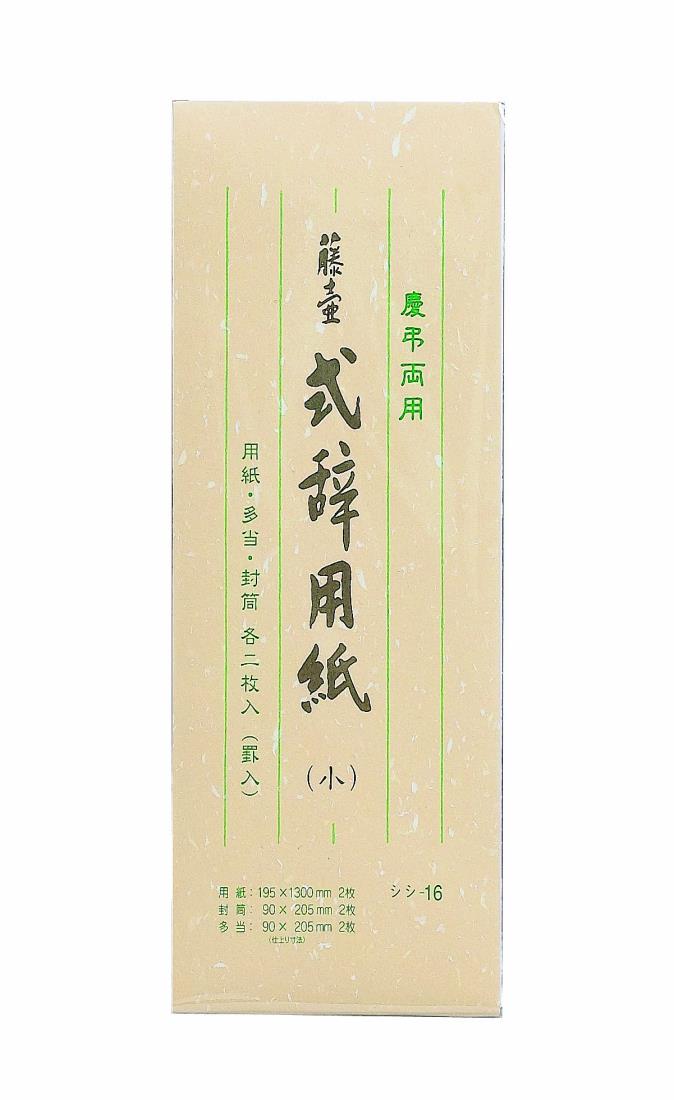 慶弔両用
藤壷 式辞用紙 (小)
用紙・多当・封筒 各二枚入 (罫入)
用紙: 195×1300mm 2枚
封筒: 90×205mm 2枚
多当: 90×205mm 2枚
(仕上り寸法)
シシ-16